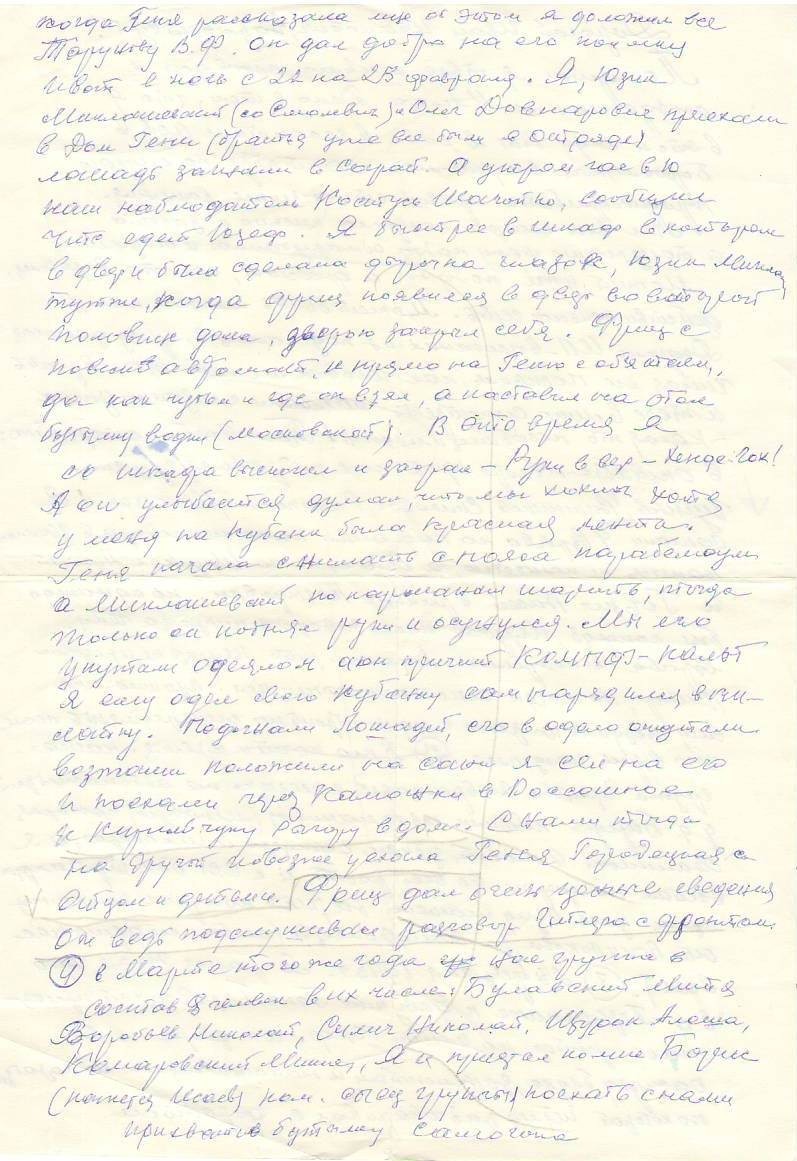 когда Геня рассказала мне об этом я доложил все
Тарунову В.Ф. Он дал добро на его поимку
И вот в ночь с 22 на 23 февраля. Я, Юзик
Миклашевский (со Смолевич) и Олег Довнарович приехали
в Дом Гени (братья уже все были в отряде)
лошадь загнали в сарай. А утром час в 10
наш наблюдатель Костусь Шачотко, сообщил
что едет Юзеф. Я быстрее в шкаф в котором
в двери была сделана дырочка глазок, Юзик Миклаш
тут же, когда фриц появился в двер во второй
половине дома, дверью закрыл себя. Фриц с
повесив автомат, и прямо на Геню с обятиям,
да как путный где он взял, а поставил на стол
бутылку водки (Московской). В это время я
со шкафа выскочил и заорал – Руки в вер – Хенде-Гок!
А он улыбается думал, что мы хохмы хотя
у меня на кубанке была красная лента.
Геня начала снимать с пояса парабеллум
а Миклашевский по карманам шарить, тогда
только он поднял руки и осунулся. Мы его
укутали одеялом а он кричит КАМПФ – кальт
Я ему одел свою кубанку сам нарядился в пи-
лотку. Подогнали Лошадей, его в одеяло опутали
возжами положили на сани я сел на его
и поехали через Камошки в Россошное
к Кирильчуку Рыгору в дом. С нами тогда
на другой повозке уехала Геня Городецкая с
Отцом и детьми. Фриц дал очень ценные сведения
Он ведь подслушивал разговор Гитлера с фронтом.
(4) в Марте того же года наша группа в
состав 8 человек в их числе: Булавский Митя
Воробьев Николай, Силич Николай, Щурок Алеша,
Комаровский Миша, Я и пристал ко мне Борис
(кажется Исаев) ком. сысд группы поехать с нами
прихватив бутылку самогона